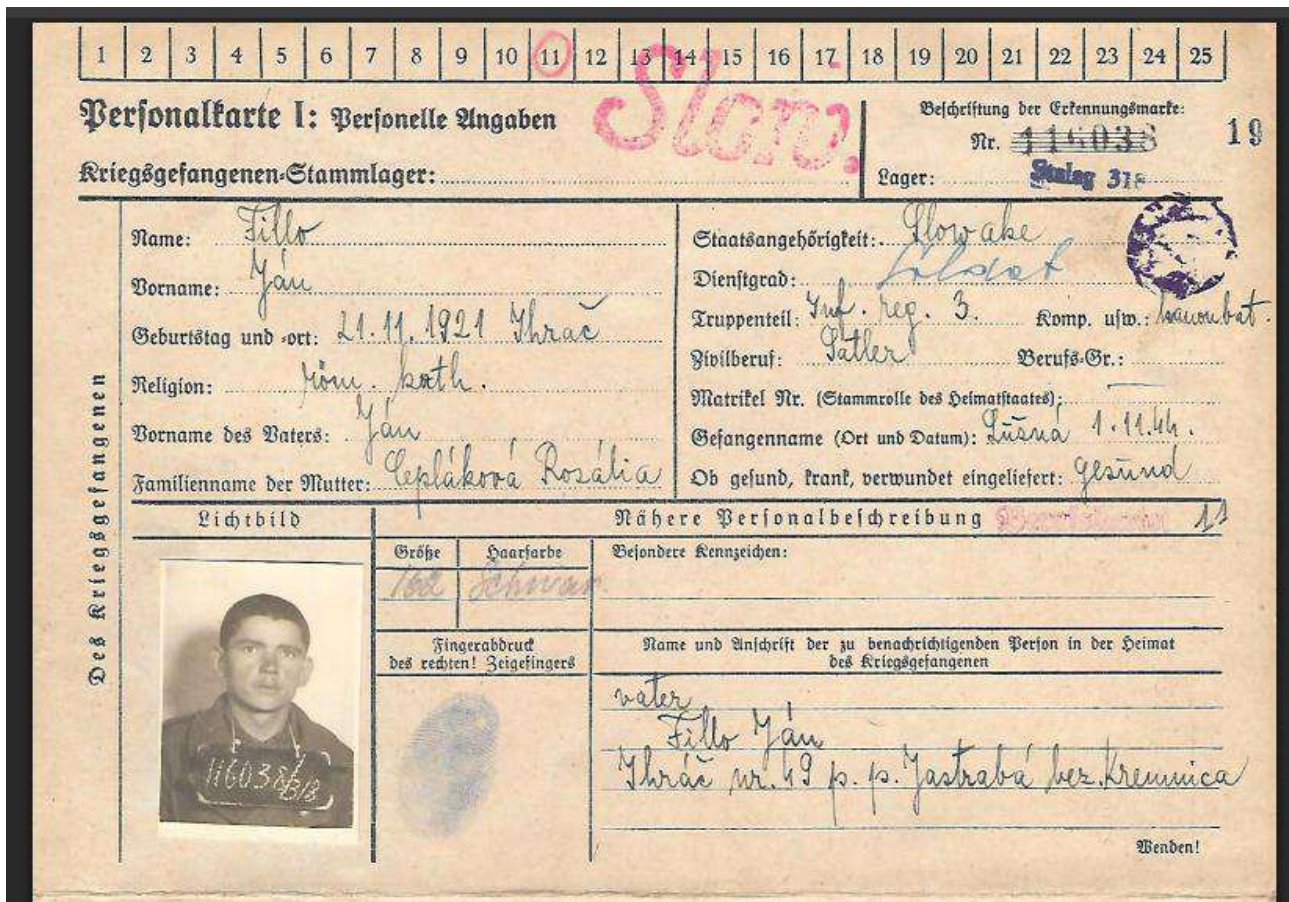 1 2 3 4 5 6 7 8 9 10 11 12 13 14 15 16 17 18 19 20 21 22 23 24 25
Slow.
Personalkarte I: Personelle Angaben
Beschriftung der Erkennungsmarke:
Nr. 116038
19
Kriegsgefangenen-Stammlager:
Lager: Stalag 318
Des Kriegsgefangenen
Name: Fillo
Vorname: Ján
Geburtstag und -ort: 21.11.1921 Ihrač
Religion: röm. kath.
Vorname des Vaters: Ján
Familienname der Mutter: Cepláková Rosália
Staatsangehörigkeit: Slowake
Dienstgrad: Soldat
Truppenteil: Inf. reg. 3. Komp. usw.: kanonbat.
Zivilberuf: Satler Berufs-Gr.:
Matrikel Nr. (Stammrolle des Heimatstaates):
Gefangenname (Ort und Datum): Lúšná 1.11.44.
Ob gesund, krank, verwundet eingeliefert: gesund
Lichtbild
Nähere Personalbeschreibung 11
Größe Haarfarbe Besondere Kennzeichen:
162 Schwarz
116038/318
Fingerabdruck
des rechten! Zeigefingers
Name und Anschrift der zu benachrichtigenden Person in der Heimat
des Kriegsgefangenen
vater
Fillo Ján
Ihráč nr. 49 p. p. Jastrabá bez. Kremnica
Wenden!